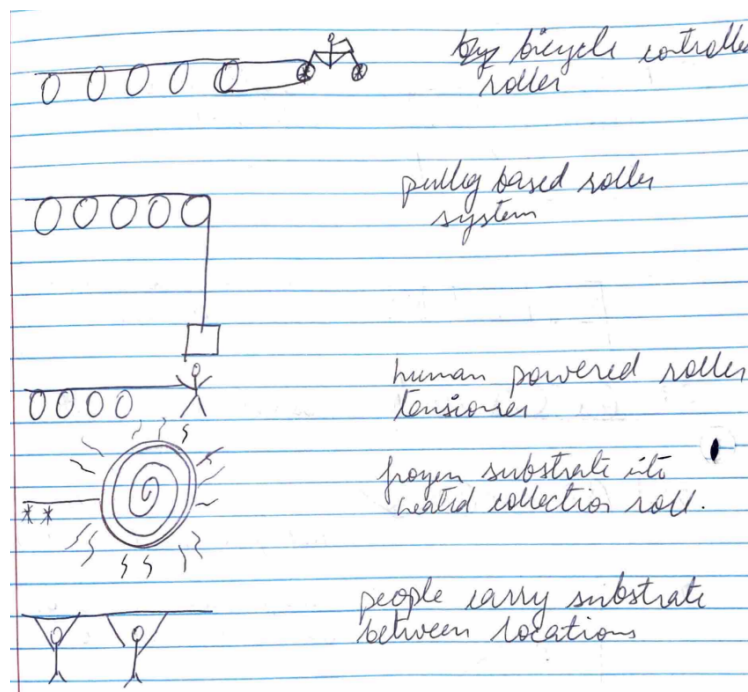 bicycle controlled
roller
pulley based roller
system
human powered roller
tensioner
frozen substrate into
heated collection roll.
people carry substrate
between locations